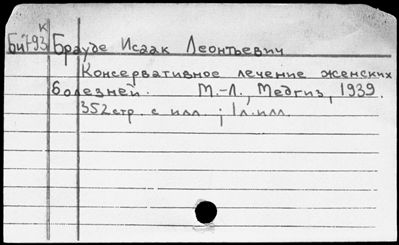 К
БиЧ93 Брауде Исаак Леонтьевич
Консервативное лечение женских
болезней. М.-Л., Медгиз, 1939.
352стр. с илл. ; 1л.илл.